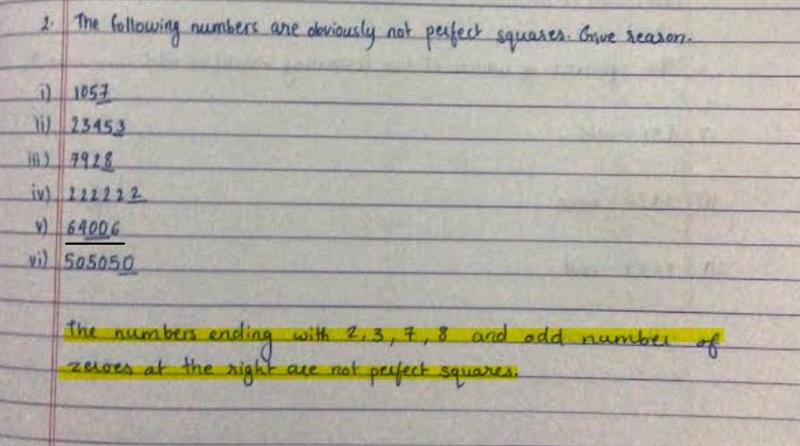 2. The following numbers are obviously not perfect squares. Give reason.
i) 1057
ii) 23453
iii) 7928
iv) 222222
v) 64006
vi) 505050
The numbers ending with 2, 3, 7, 8 and odd number of
zeroes at the right are not perfect squares.